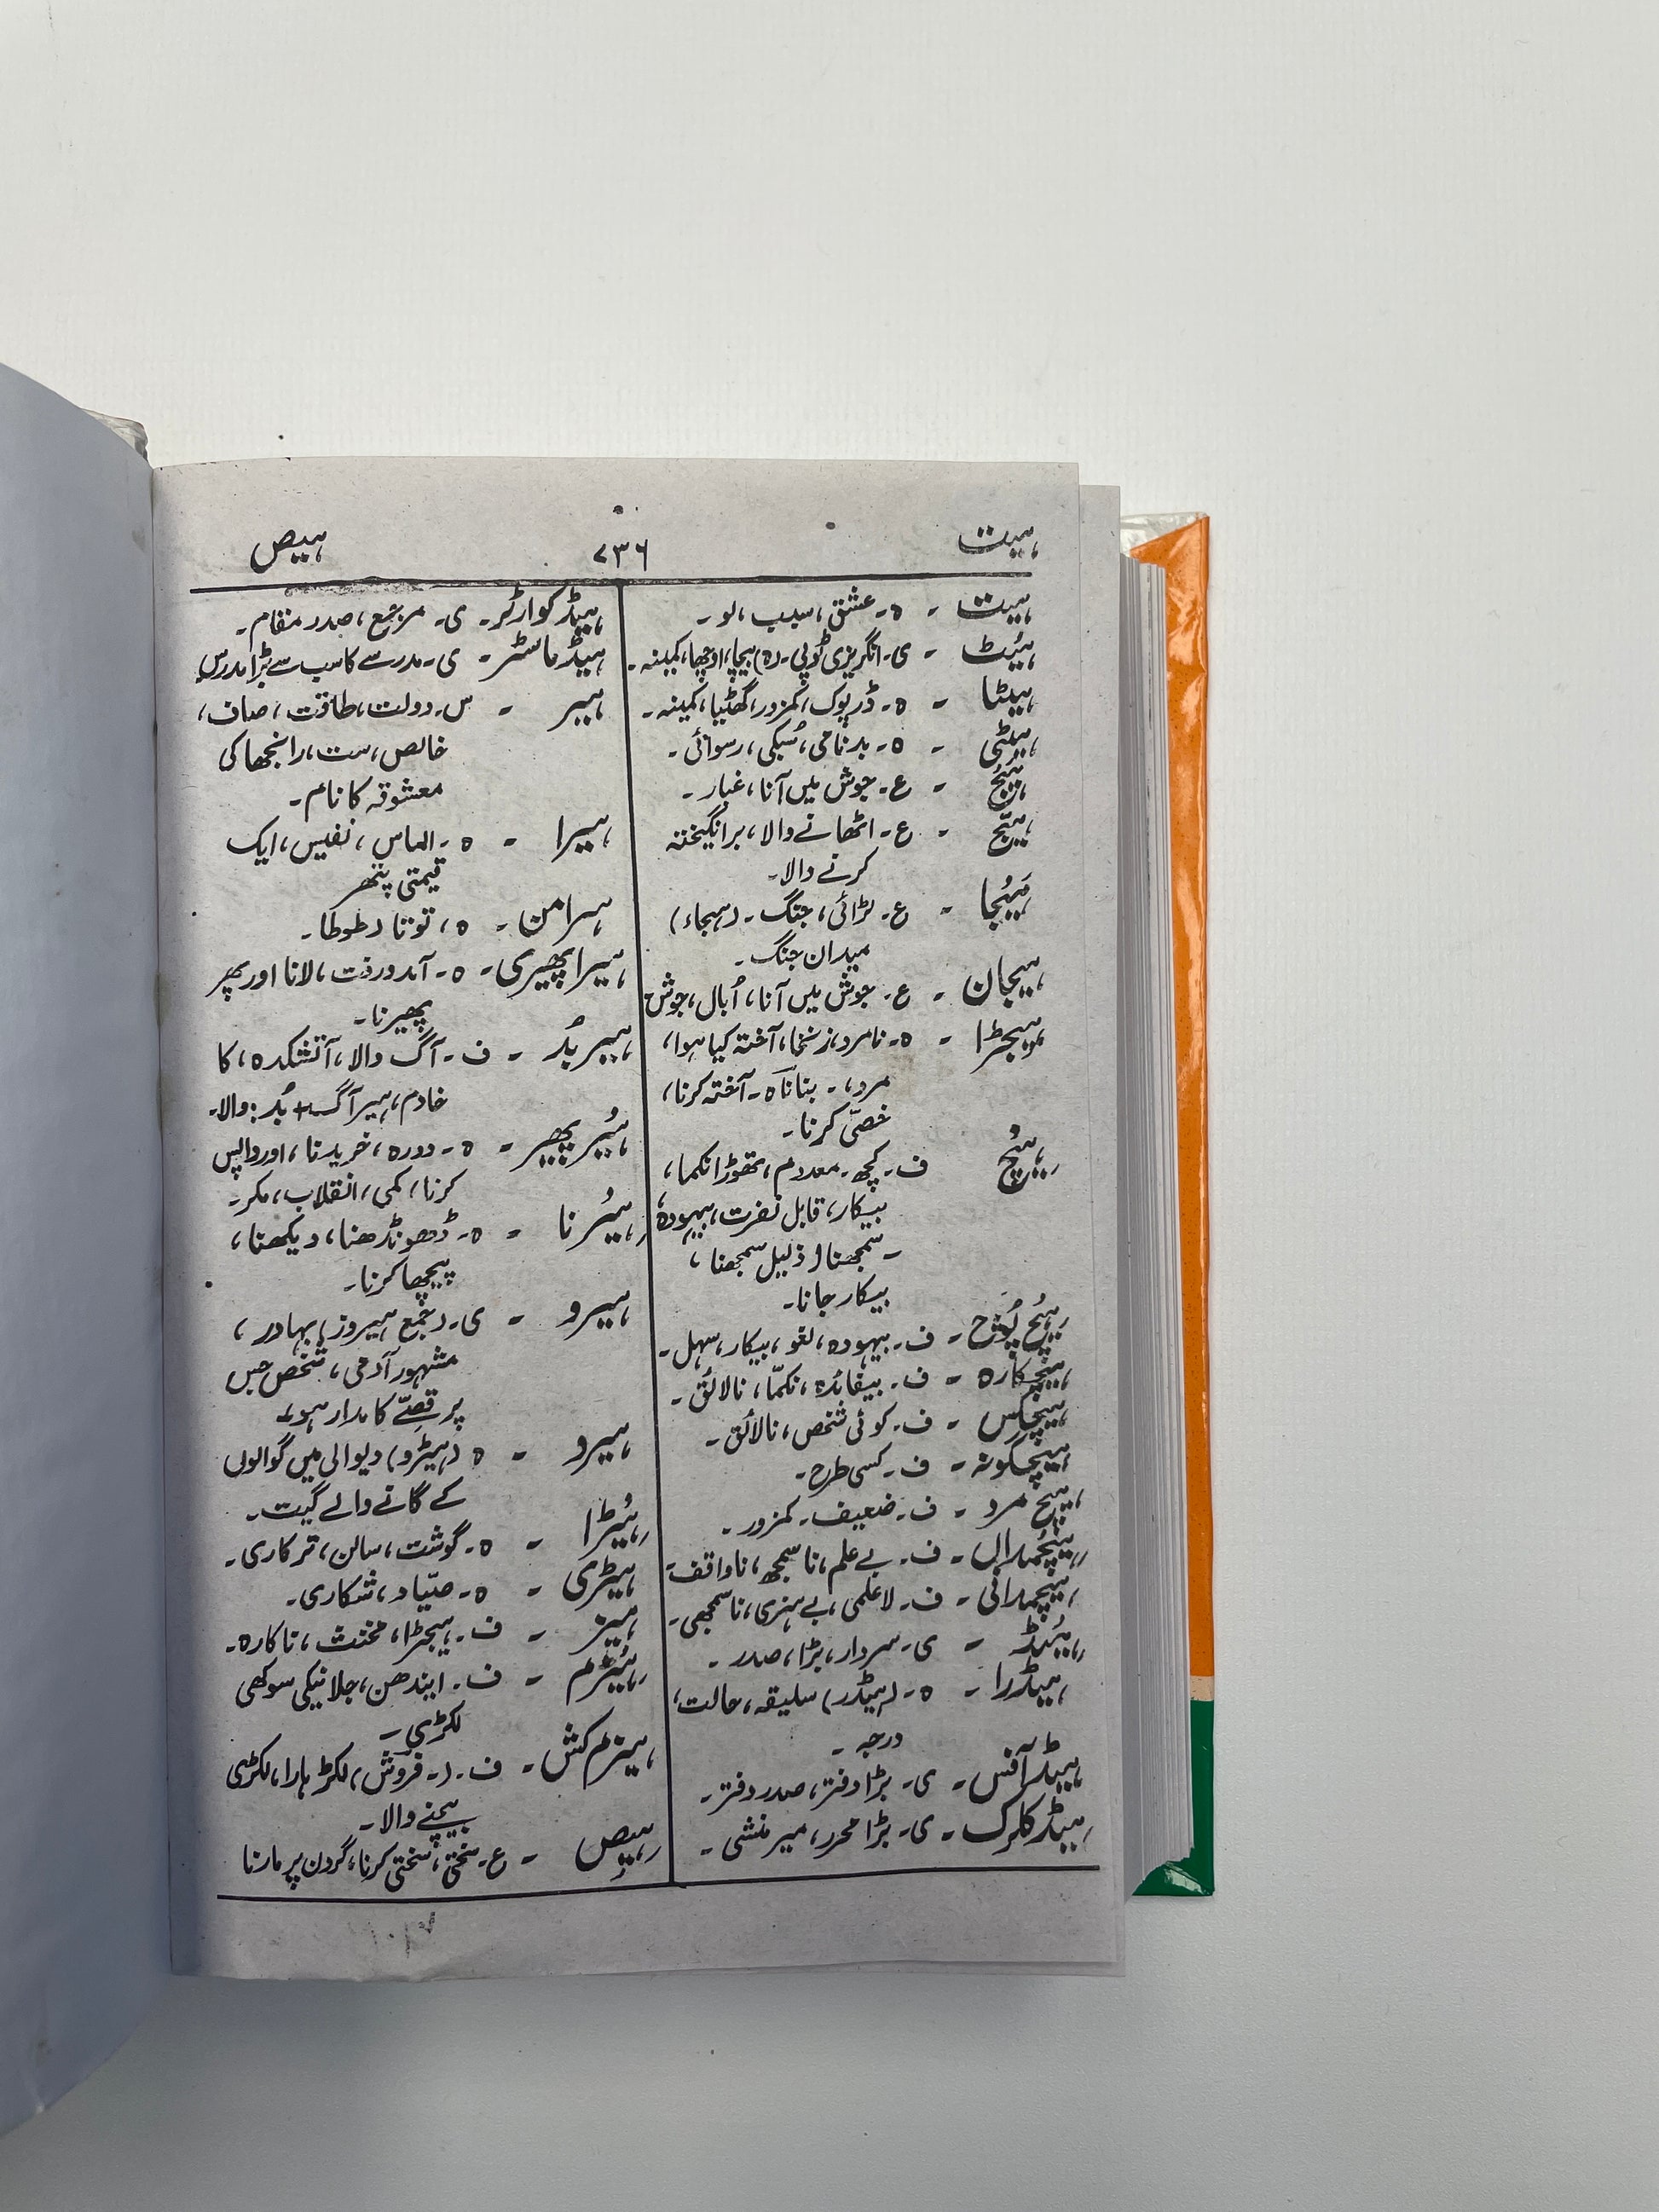 ہیت
۷۳۶
ہیص
ہیت - ہ۔ عشق، سبب، لو۔
ہیٹ - ی۔ انگریزی ٹوپی۔ (ہ) ہیچا، اوچھا، کمینہ۔
ہیٹا - ہ۔ ڈرپوک، کمزور، گھٹیا، کمینہ۔
ہیٹی - ہ۔ بدنامی، سُبکی، رسوائی۔
ہیج - ع۔ جوش میں آنا، غبار۔
ہیّج - ع۔ اٹھانے والا، برانگیختہ
کرنے والا۔
ہَیُجا - ع۔ لڑائی، جنگ۔ (ہیجاء)
میدان جنگ۔
ہیجان - ع۔ جوش میں آنا، اُبال، جوش
ہیجڑا - ہ۔ نامرد، زنخا، آختہ کیا ہوا،
مرد، ۔ بنانا ہ۔ آختہ کرنا،
خصّی کرنا۔
ہیچ ف۔ کچھ۔ معدوم، تھوڑا نکما،
بیکار، قابل نفرت، بیہودہ،
۔ سمجھنا (ذلیل سمجھنا،
بیکار جانا۔
ہیچ پُوچ - ف۔ بیہودہ، لغو، بیکار، سہل۔
ہیچکارہ - ف۔ بیفائدہ، نکمّا، نالائق۔
ہیچکس - ف۔ کوئی شخص، نالائق۔
ہیچگونہ - ف۔ کسی طرح۔
ہیچ مرد - ف۔ ضعیف۔ کمزور۔
ہیچمداں - ف۔ بے علم، ناسمجھ، ناواقف۔
ہیچمدانی - ف۔ لاعلمی، بے ہنری، ناسمجھی۔
ہیُڈ - ی۔ سردار، بڑا، صدر۔
ہیڈرا - ہ۔ (ہیڈر) سلیقہ، حالت،
درجہ۔
ہیڈ آفس - ی۔ بڑا دفتر، صدر دفتر۔
ہیڈ کلرک - ی۔ بڑا محرر، میر منشی۔
ہیڈ کوارٹر - ی۔ مرجع، صدر مقام۔
ہیڈ ماسٹر - ی۔ مدرسے کا سب سے بڑا مدرس
ہیر - س۔ دولت، طاقت، صاف،
خالص، ست، رانجھا کی
معشوقہ کا نام۔
ہیرا - ہ۔ الماس، نفیس، ایک
قیمتی پتھر
ہیرامن - ہ، توتا (طوطا۔
ہیرا پھیری - ہ۔ آمد ورفت، لانا اور پھر
پھیرنا۔
ہیر بُد - ف۔ آگ والا، آتشکدہ، کا
خادم، ہیر آگ + بُد: والا۔
ہیُر پھیر - ہ۔ دورہ، خریدنا، اور واپس
کرنا، کمی، انقلاب، مکر۔
ہیُرنا - ہ۔ ڈھونڈھنا، دیکھنا،
پیچھا کرنا۔
ہیرو - ی۔ (جمع ہیروز) بہادر،
مشہور آدمی، شخص جس
پر قصّے کا مدار ہو۔
ہیرو - ہ (ہیڑو) دیوالی میں گوالوں
کے گانے والے گیت۔
ہیُڑا - ہ۔ گوشت، سالن، ترکاری۔
ہیڑی - ہ۔ صیّاد، شکاری۔
ہیز - ف۔ ہیجڑا، مخنث، ناکارہ۔
ہیُزم - ف۔ ایندھن، جلانیکی سوکھی
لکڑی۔
ہیزم کش - ف۔ (۔ فروش) لکڑ ہارا، لکڑی
بیچنے والا۔
ہیص - ع۔ سختی، سختی کرنا، گردن پر مارنا